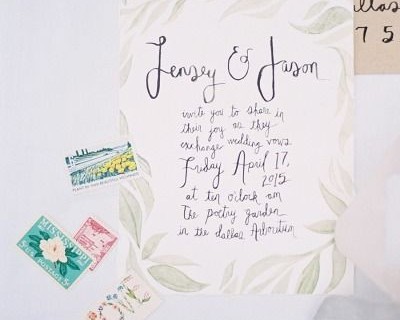 Jensey & Jason
invite you to share in
their joy as they
exchange wedding vows
Friday April 17,
2015
at ten o'clock am
the poetry garden
in the dallas Arboretum
allas
7 5
MISSISSIPPI
POSTAGE